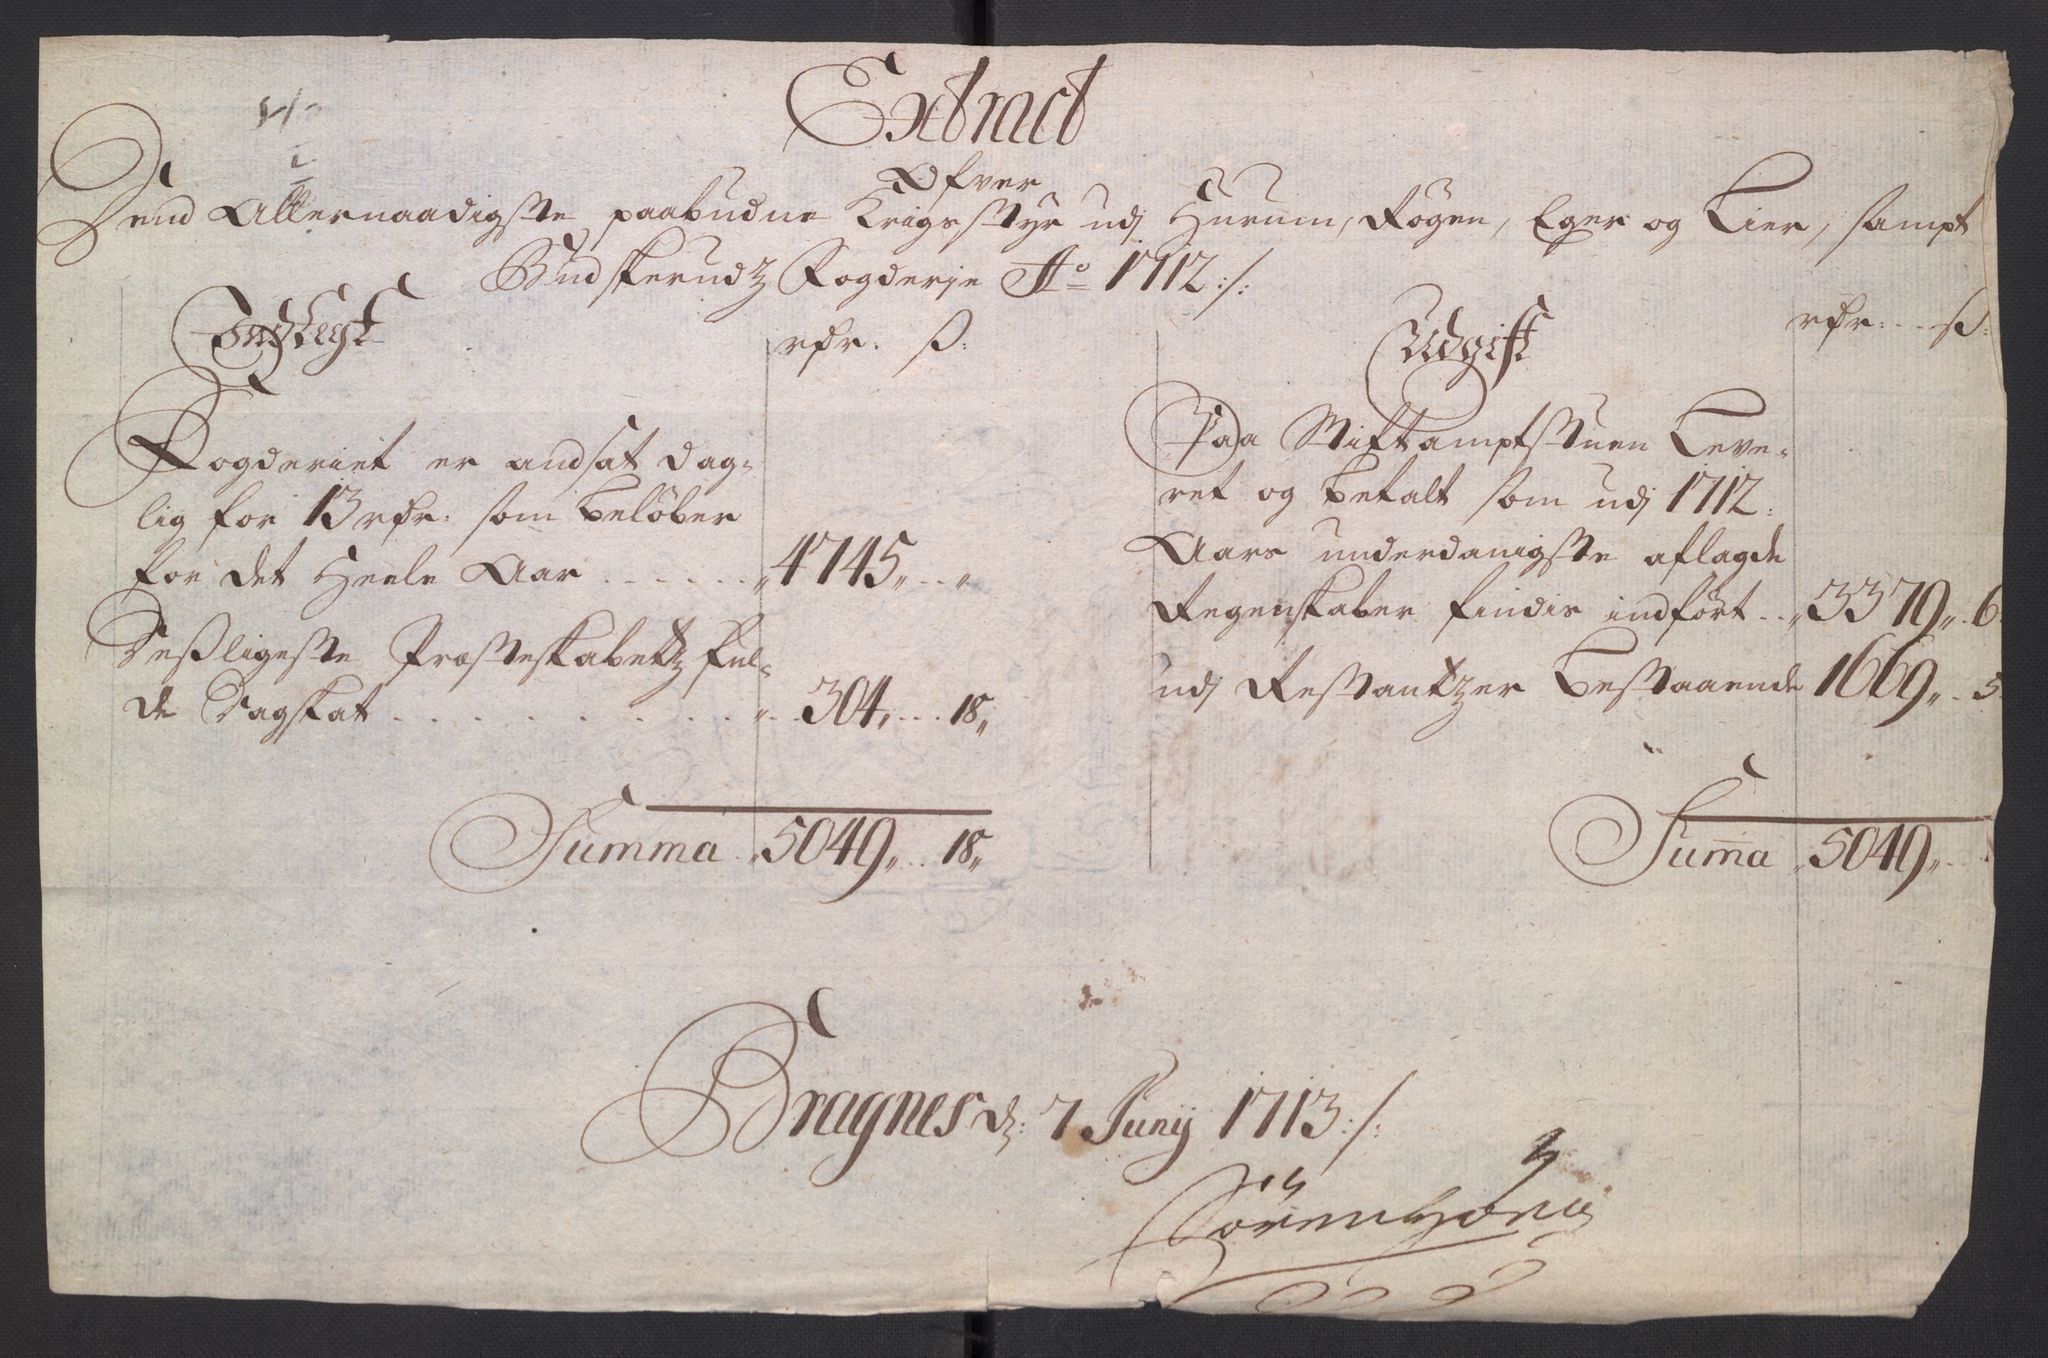 Extract
Ofver
Dend Allernaadigste paabudne Krigsstyr udj Hurum, Røgen, Eger og Lier, sampt
Budskerudz Fogderje Ao 1712:/:
Indtegt
rdr. ß:
Fogderiet er andsat dag-
lig for 13 rdr: som beløber
for det Heele Aar ...... 4745 „ .. „
Desligeste Præsteskabetz ful-
de Dagskat ........... 304 „ ... 18 „
Summa 5049 „ .. 18 „
Udgift
rdr: ... ß:
Paa Stiftamptstuen Leve-
ret og betalt som udj 1712.
Aars underdanigste aflagde
Regenskaber findis indført .. 3379 „ . 6
udj Restantzer bestaaende 1669 „ .. 5
Suma 5049 „ ..
Bragnes d: 7 Junij 1713:/:
Sören